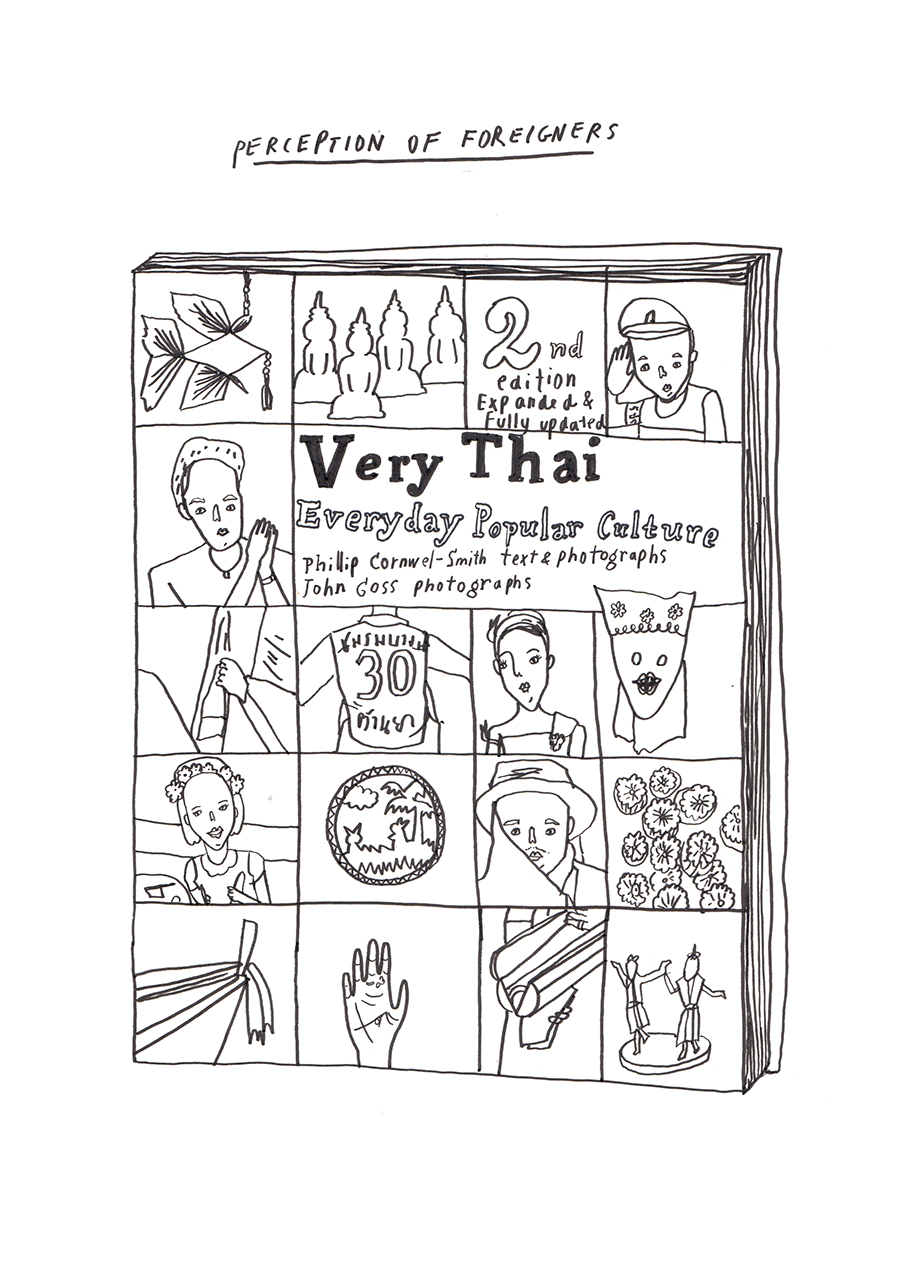 PERCEPTION OF FOREIGNERS
2nd
edition
Expanded &
Fully updated
Very Thai
Everyday Popular Culture
Phillip Cornwel-Smith text & photographs
John Goss photographs
30